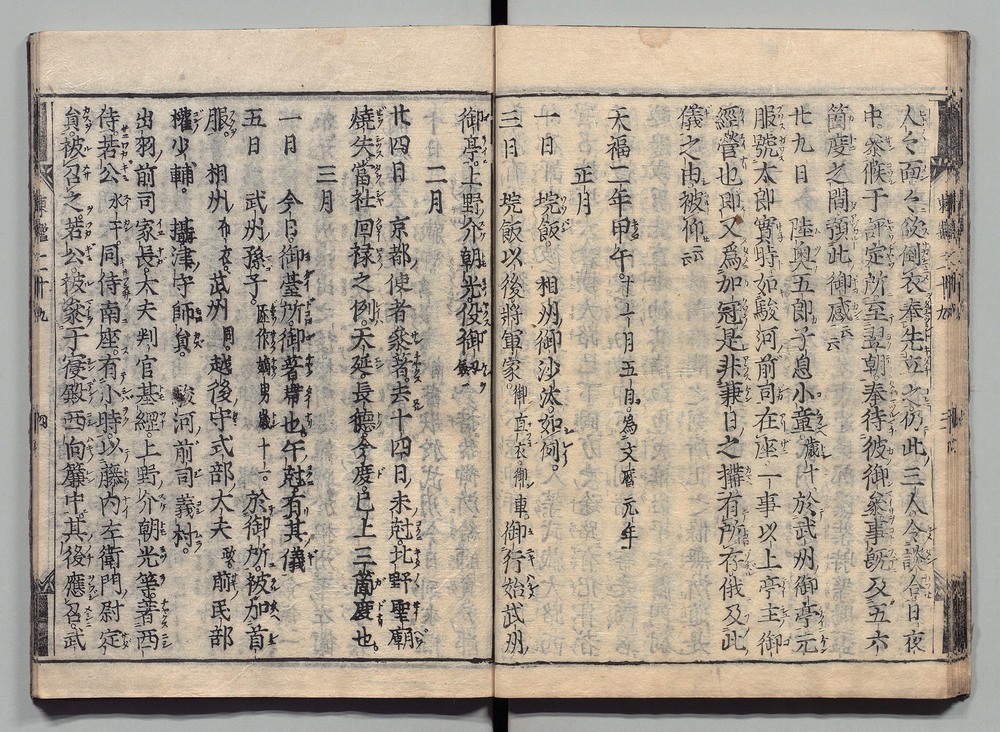 人々面々欲倒衣奉先立之仍此三人令談合日夜
中參候于評定所至翌朝奉待彼御參事既及五六
箇度之間預此御感云云
廿九日　陸奥五郎子息小童歳十於武州御亭元
服號太郎實時如駿河前司在座一事以上亭主御
經營也即又爲加冠是非兼日之搆有所存俄及此
儀之由被仰云云
天福二年甲午。十一月五日。爲文暦元年
正月
一日　垸飯。相州御沙汰。如何。
三日　垸飯以後將軍家。御直衣。御車。御行始武州
御亭。上野介朝光役御劔
二月
廿四日　京都使者參著。去十四日。未尅。北野聖廟
燒失。當社回禄之例。天延長德今度已上三箇度也。
三月
一日　今日。御臺所。御著帶也午尅有其儀
五日　武州孫子。歳十一。於御所。被加首
服。相州布衣。武州同。越後守式部大夫前民部
權少輔。攝津守師員。駿河前司義村。
出羽前司家長。大夫判官基經。上野介朝光等著西
侍若公水干同侍南座。有小時。以藤内左衛門尉定
員。被召之。若公被參于寢殿西向簾中。其後應召。武